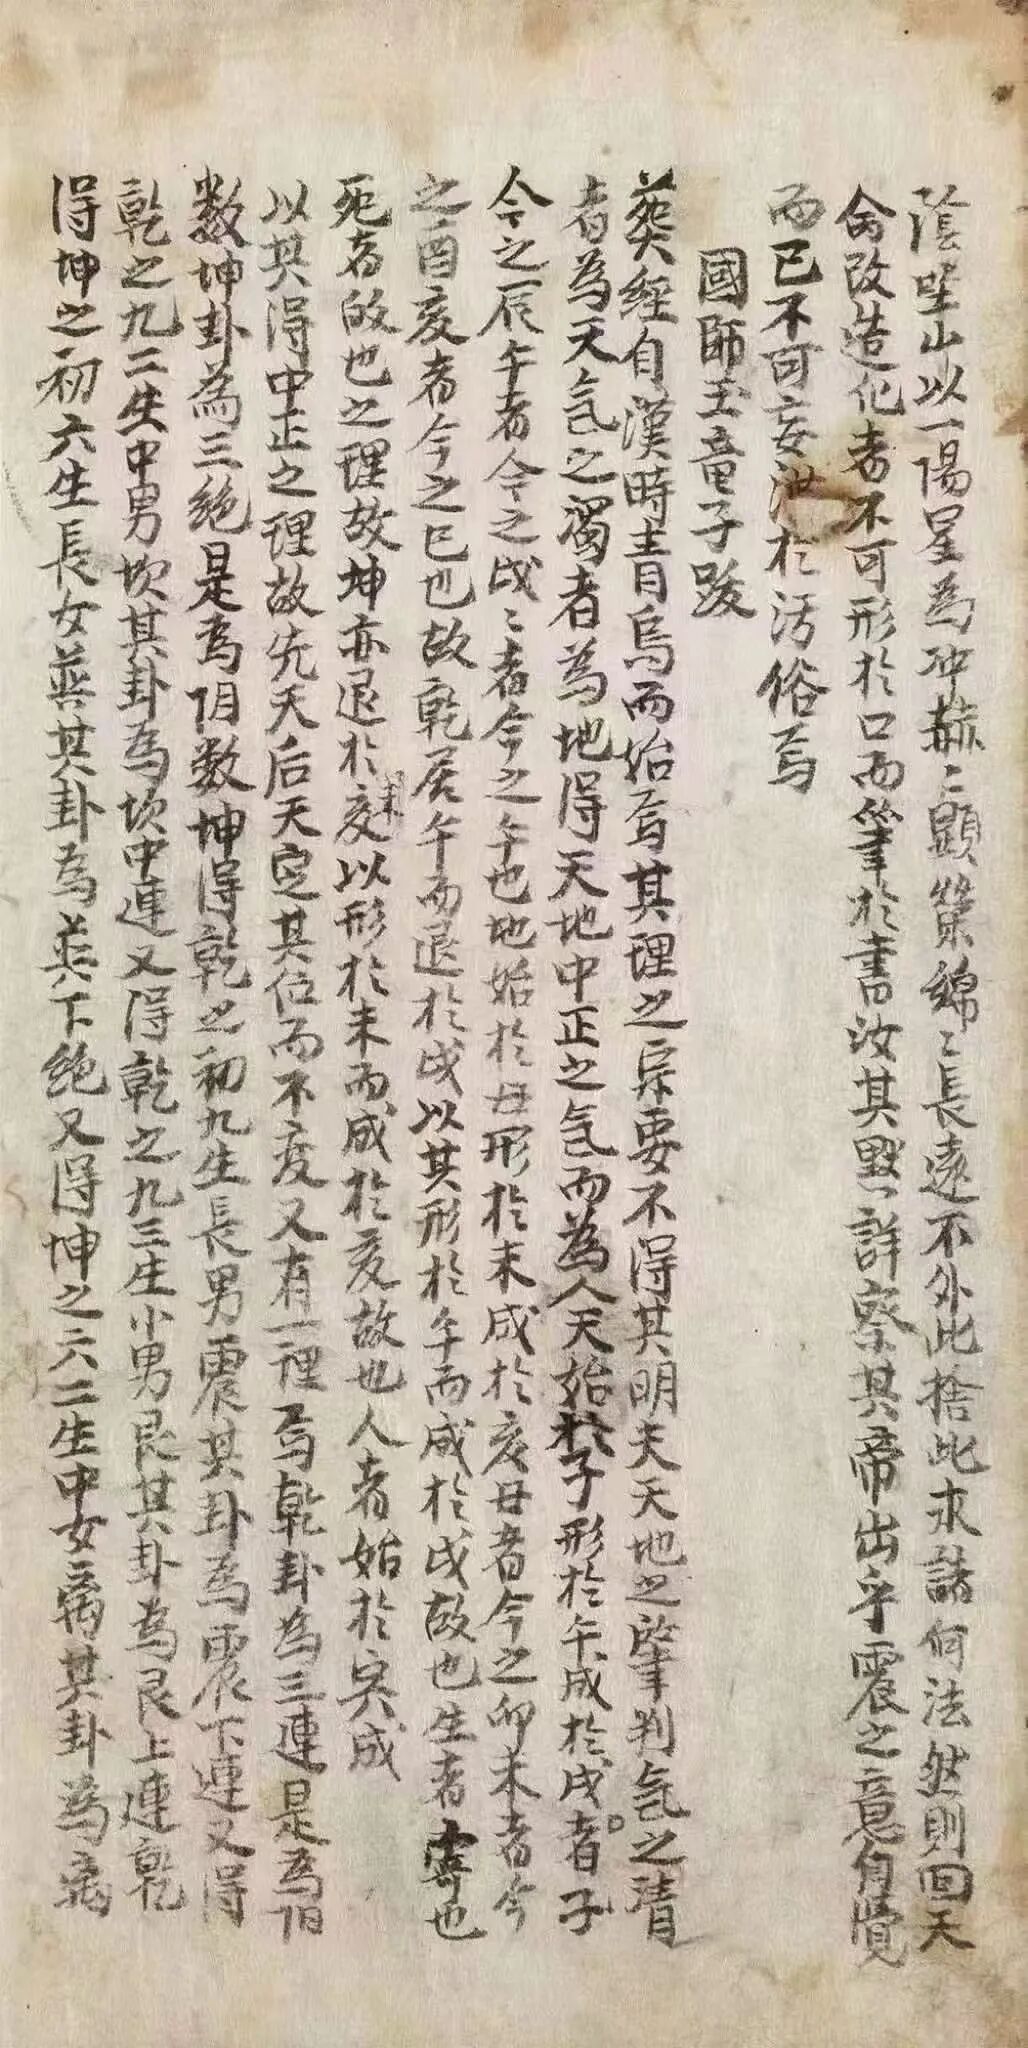 陰㘴山以一陽星為冲赫〻顯策綿〻長遠不外此捨此求諸何法然則回天
命改造化者不可形於口而筆於書汝其黙詳察其帝出乎震之意自覺
而已不可妄泄於汚俗焉
國師玉童子跋
葬經自漢時青烏而始焉其理之宗要不得其明夫天地之肇判气之清
者為天气之濁者為地得天地中正之气而為人天始於子形於午成於戌者子
今之辰午者今之戌〻者今之午也地始於丑形於未成於亥丑者今之卯未者今
之酉亥者今之巳也故乾居午而退於戌以其形於午而成於戌故也生者寄也
死者的也之理故坤亦退於亥以形於未而成於亥故也人者始於寅成
以其得中正之理故先天后天定其位而不变又有一理焉乾卦為三連是為阳
数坤卦為三絶是為阴数坤得乾之初九生長男震其卦為震下連又得
乾之九二生中男坎其卦為坎中連又得乾之九三生小男艮其卦為艮上連乾
得坤之初六生長女巽其卦為巽下絶又得坤之六二生中女离其卦為离